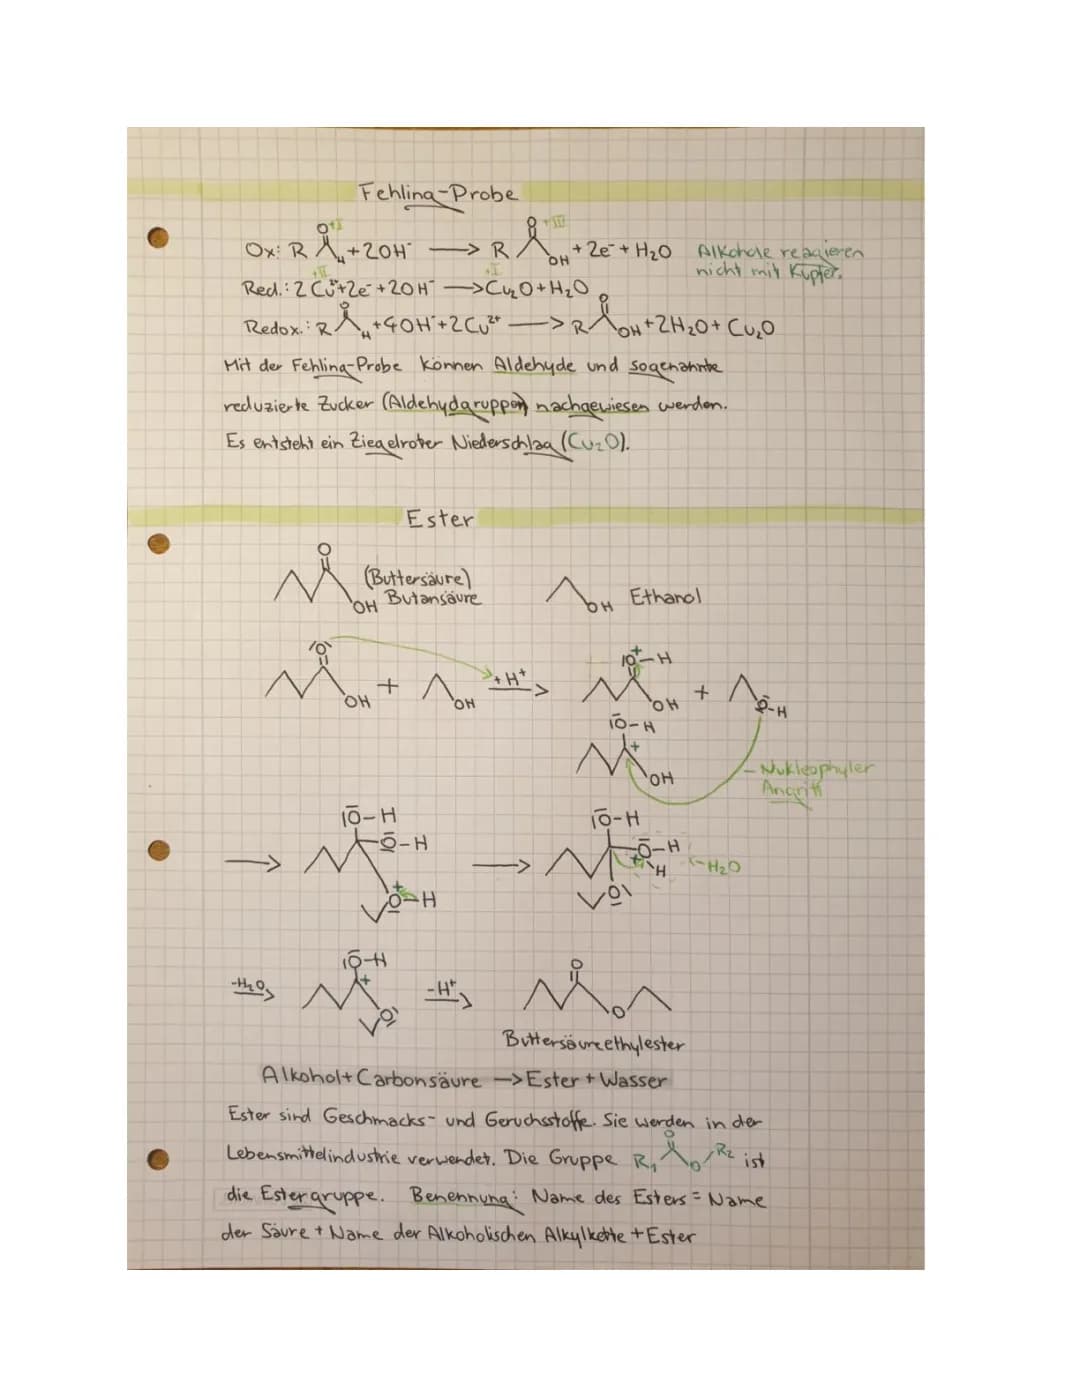 Fehling-Probe
+I +III
Ox: R O H + 2OH⁻ → R O OH + 2e⁻ + H₂O Alkohole reagieren
nicht mit Kupfer.
+II +I
Red.: 2 Cu²⁺ + 2e⁻ + 2OH⁻ → Cu₂O + H₂O
Redox.: R O H + 4OH⁻ + 2Cu²⁺ → R O OH + 2H₂O + Cu₂O
Mit der Fehling-Probe können Aldehyde und sogenannte
reduzierte Zucker (Aldehydgruppen) nachgewiesen werden.
Es entsteht ein Ziegelroter Niederschlag (Cu₂O).
Ester
O OH (Buttersäure)
Butansäure
OH Ethanol
O OH + OH + H⁺ → O⁺-H OH + O-H
O-H + OH
- Nukleophyler
Angriff
→ O-H O-H O⁺-H → O-H O⁺-H H O -H₂O
-H₂O → O-H + O -H⁺ → O O
Buttersäureethylester
Alkohol + Carbonsäure → Ester + Wasser
Ester sind Geschmacks- und Geruchsstoffe. Sie werden in der
Lebensmittelindustrie verwendet. Die Gruppe R₁ O O R₂ ist
die Estergruppe. Benennung: Name des Esters = Name
der Säure + Name der Alkoholischen Alkylkette + Ester